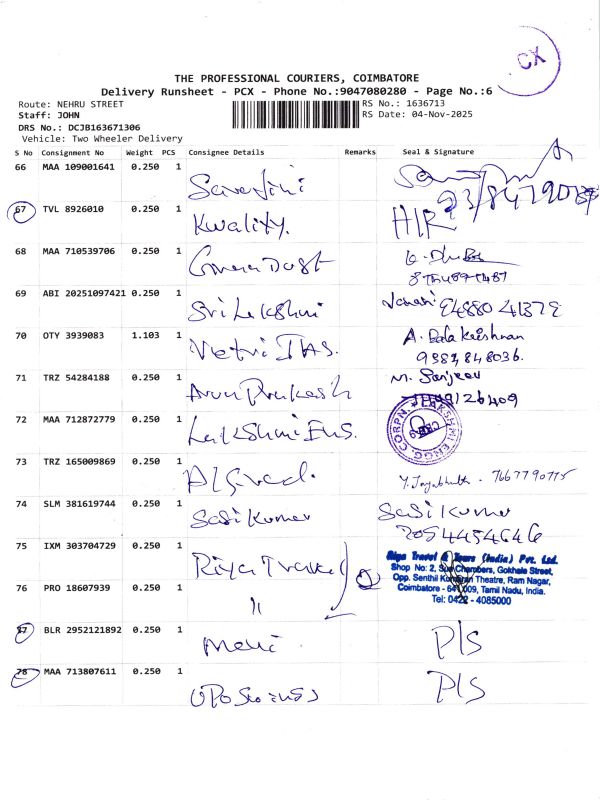 CX
THE PROFESSIONAL COURIERS, COIMBATORE
Delivery Runsheet - PCX - Phone No.:9047080280 - Page No.:6
Route: NEHRU STREET
RS No.: 1636713
Staff: JOHN
RS Date: 04-Nov-2025
DRS No.: DCJB163671306
Vehicle: Two Wheeler Delivery
S No Consignment No Weight PCS Consignee Details Remarks Seal & Signature
66 MAA 109001641 0.250 1
67 TVL 8926010 0.250 1 Kwality.
68 MAA 710539706 0.250 1
69 ABI 20251097421 0.250 1 Sri Lakshmi
70 OTY 3939083 1.103 1 Vetri IAS. A. Bala Krishnan
9384848036.
71 TRZ 54284188 0.250 1 Arun Prakash M. Sanjeev
72 MAA 712872779 0.250 1 Lakshmi Ens. LAKSHMI ENGG. CORPN.
73 TRZ 165009869 0.250 1 7667790775
74 SLM 381619744 0.250 1 Sasi Kumar Sasi Kumar
75 IXM 303704729 0.250 1 Riya Travel Riya Travel & Tours (India) Pvt. Ltd.
Shop No: 2, Sun Chambers, Gokhale Street,
Opp. Senthil Kumaran Theatre, Ram Nagar,
Coimbatore - 641 009, Tamil Nadu, India.
Tel: 0422 - 4085000
76 PRO 18607939 0.250 1 "
77 BLR 2952121892 0.250 1 P/S
78 MAA 713807611 0.250 1 P/S